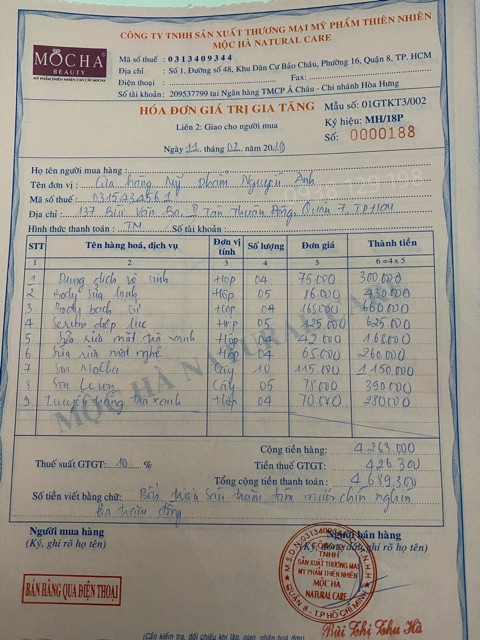 CÔNG TY TNHH SẢN XUẤT THƯƠNG MẠI MỸ PHẨM THIÊN NHIÊN
MỘC HÀ NATURAL CARE
MOCHA
BEAUTY
MỸ PHẨM THIÊN NHIÊN CAO CẤP MỘC HÀ
Mã số thuế : 0313409344
Địa chỉ : Số 1, Đường số 48, Khu Dân Cư Bảo Châu, Phường 16, Quận 8, TP. HCM
Điện thoại : Fax:
Số tài khoản: 209537799 tại Ngân hàng TMCP Á Châu - Chi nhánh Hòa Hưng
HÓA ĐƠN GIÁ TRỊ GIA TĂNG
Mẫu số: 01GTKT3/002
Liên 2: Giao cho người mua
Ký hiệu: MH/18P
Số: 0000188
Ngày 11 tháng 02 năm 2019
Họ tên người mua hàng :
Tên đơn vị : Cửa hàng Mỹ Phẩm Nguyễn Anh
Mã số thuế :
Địa chỉ : 137 Bùi Văn Ba, P Tân Thuận Đông, Quận 7, TP HCM
Hình thức thanh toán : TM Số tài khoản:
STT Tên hàng hoá, dịch vụ Đơn vị tính Số lượng Đơn giá Thành tiền
1 2 3 4 5 6 = 4 x 5
1 Dung dịch vệ sinh Hộp 04 75.000 300.000
2 Body sữa Hộp 05 86.000 430.000
3 Body bạch Hộp 04 165.000 660.000
4 Serum diếp Hộp 05 125.000 625.000
5 Sữa rửa mặt trà xanh Hộp 04 42.000 168.000
6 Sữa rửa mặt nghệ Hộp 04 65.000 260.000
7 Son Mocha Cây 10 115.000 1.150.000
8 Son Cây 05 78.000 390.000
9 trà xanh Hộp 04 70.000 280.000
MỘC HÀ NATURAL CARE
Cộng tiền hàng: 4.263.000
Thuế suất GTGT: 10 % Tiền thuế GTGT: 426.300
Tổng cộng tiền thanh toán: 4.689.300
Số tiền viết bằng chữ: Bốn triệu sáu trăm tám mươi chín nghìn
ba trăm đồng
Người mua hàng Người bán hàng
(Ký, ghi rõ họ tên) (Ký, đóng dấu, ghi rõ họ tên)
BÁN HÀNG QUA ĐIỆN THOẠI
CÔNG TY
TNHH
SẢN XUẤT THƯƠNG MẠI
MỸ PHẨM THIÊN NHIÊN
MỘC HÀ
NATURAL CARE
QUẬN 8 - T.P HỒ CHÍ MINH
Bùi Thị Thu Hà
(Cần kiểm tra, đối chiếu khi lập, giao nhận hoá đơn)